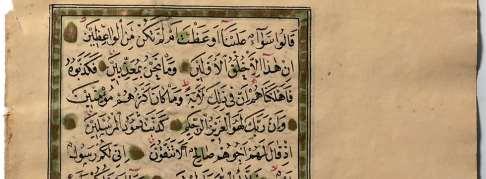 قَالُوا سَوَاءٌ عَلَيْنَا أَوَعَظْتَ أَمْ لَمْ تَكُنْ مِنَ الْوَاعِظِينَ
إِنْ هَذَا إِلَّا خُلُقُ الْأَوَّلِينَ وَمَا نَحْنُ بِمُعَذَّبِينَ فَكَذَّبُوهُ
فَأَهْلَكْنَاهُمْ إِنَّ فِي ذَلِكَ لَآيَةً وَمَا كَانَ أَكْثَرُهُمْ مُؤْمِنِينَ
وَإِنَّ رَبَّكَ لَهُوَ الْعَزِيزُ الرَّحِيمُ كَذَّبَتْ ثَمُودُ الْمُرْسَلِينَ
إِذْ قَالَ لَهُمْ أَخُوهُمْ صَالِحٌ أَلَا تَتَّقُونَ إِنِّي لَكُمْ رَسُولٌ